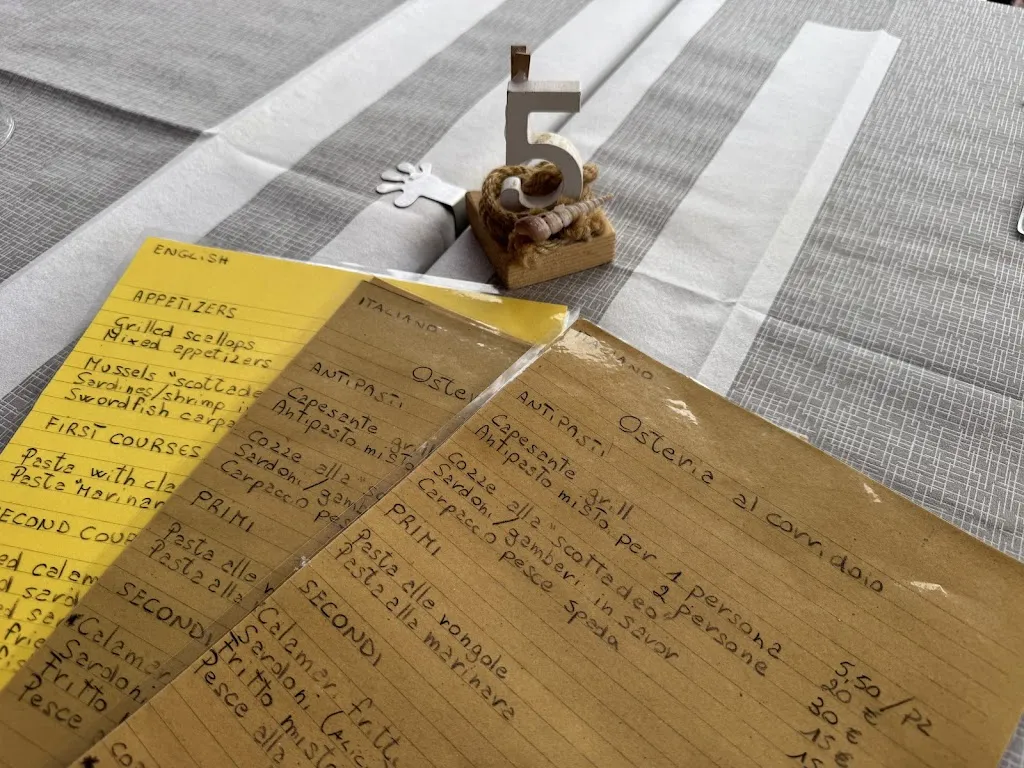 5
ENGLISH
APPETIZERS
Grilled scallops
Mixed appetizers
Mussels "scottade
Sardines/shrimp
Swordfish carpa
FIRST COURSES
Pasta with cla
Pasta "Marinar
SECOND COUR
calam
sard
ITALIANO
Oste
ANTIPASTI
Capesante gr
Antipasto mis
Cozze alla "sc
Sardoni/gam
Carpaccio pe
PRIMI
Pasta alle
Pasta alla
SECONDI
*Calamar
Sardon
Fritto
Pesce
NO
Osteria al corridoio
ANTIPASTI
Capesante grill 5,50/PZ
Antipasto misto per 1 persona 20 €
2 persone 30 €
Cozze alla "scottadeo" 15 €
Sardoni/gamberi in savor 15
Carpaccio pesce spada
PRIMI
Pasta alle vongole
Pasta alla marinara
SECONDI
*Calamari fritti
*Sardoni (Alici
Fritto misto
Pesce alla